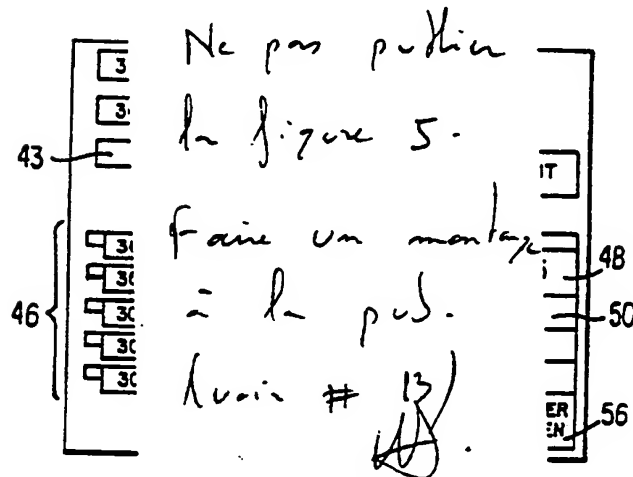 Ne pas publier
la figure 5.
Faire un montage
à la pub.
Avoir # 13
3
3
43
46
30
30
30
30
30
IT
48
50
ER
EN
56